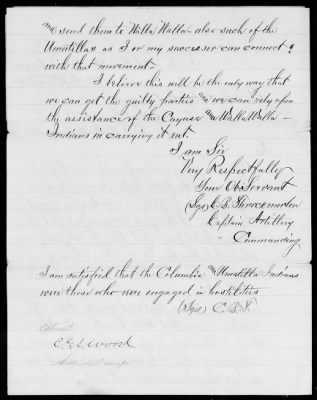 and send them to Walla Walla – also such of the
Umatillas as I or my successor can connect
with that movement –
I believe this will be the only way that
we can get the guilty parties and we can rely upon
the assistance of the Cayuse and Walla Walla –
Indians in carrying it out.
I am Sir
Very Respectfully
Your Ob Servant
(Sgd) C. B. Throckmorton
Captain Artillery
Commanding
I am satisfied that the Columbia and Umatilla Indians
were those who were engaged in hostilities
(Sgd) C. B. T.
C. E. S. Wood